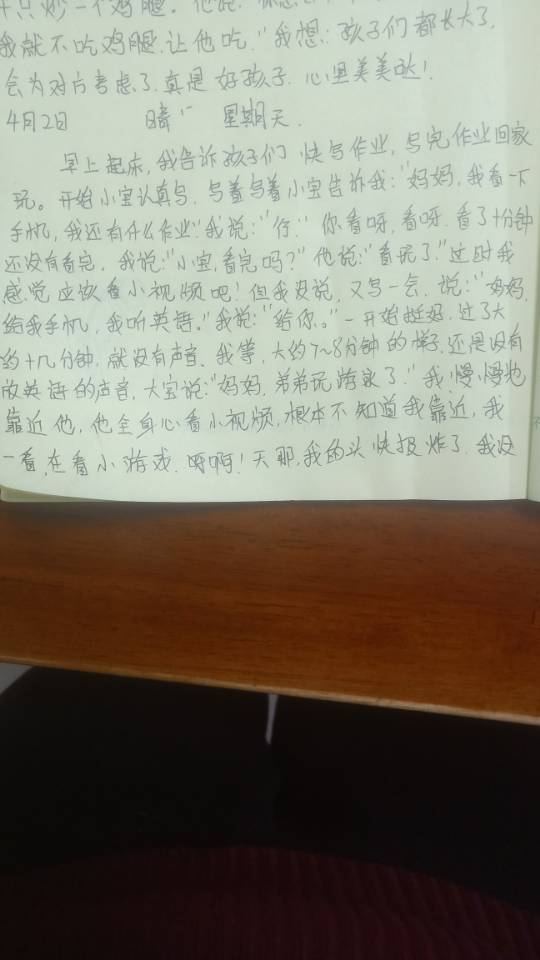 只炒一个鸡腿。他说:"你
我就不吃鸡腿,让他吃。"我想:孩子们都长大了,
会为对方考虑了,真是好孩子,心里美美哒!
4月2日 晴 星期天.
早上起床,我告诉孩子们快写作业,写完作业回家
玩。开始小宝认真写,写着写着小宝告诉我:"妈妈,我看一下
手机,我还有什么作业"我说:"仔."你看呀,看呀,看了十分钟
还没有看完,我说:"小宝,看完吗?"他说:"看玩了."这时我
感觉应该看小视频吧!但我没说,又写一会,说:"妈妈,
给我手机,我听英语."我说:"给你。"一开始挺好,过了大
约十几分钟,就没有声音,我等,大约7~8分钟的样子,还是没有
放英语的声音,大宝说:"妈妈,弟弟玩游戏了."我慢慢地
靠近他,他全身心看小视频,根本不知道我靠近,我
一看,在看小游戏,呀啊!天那,我的头快报炸了,我没